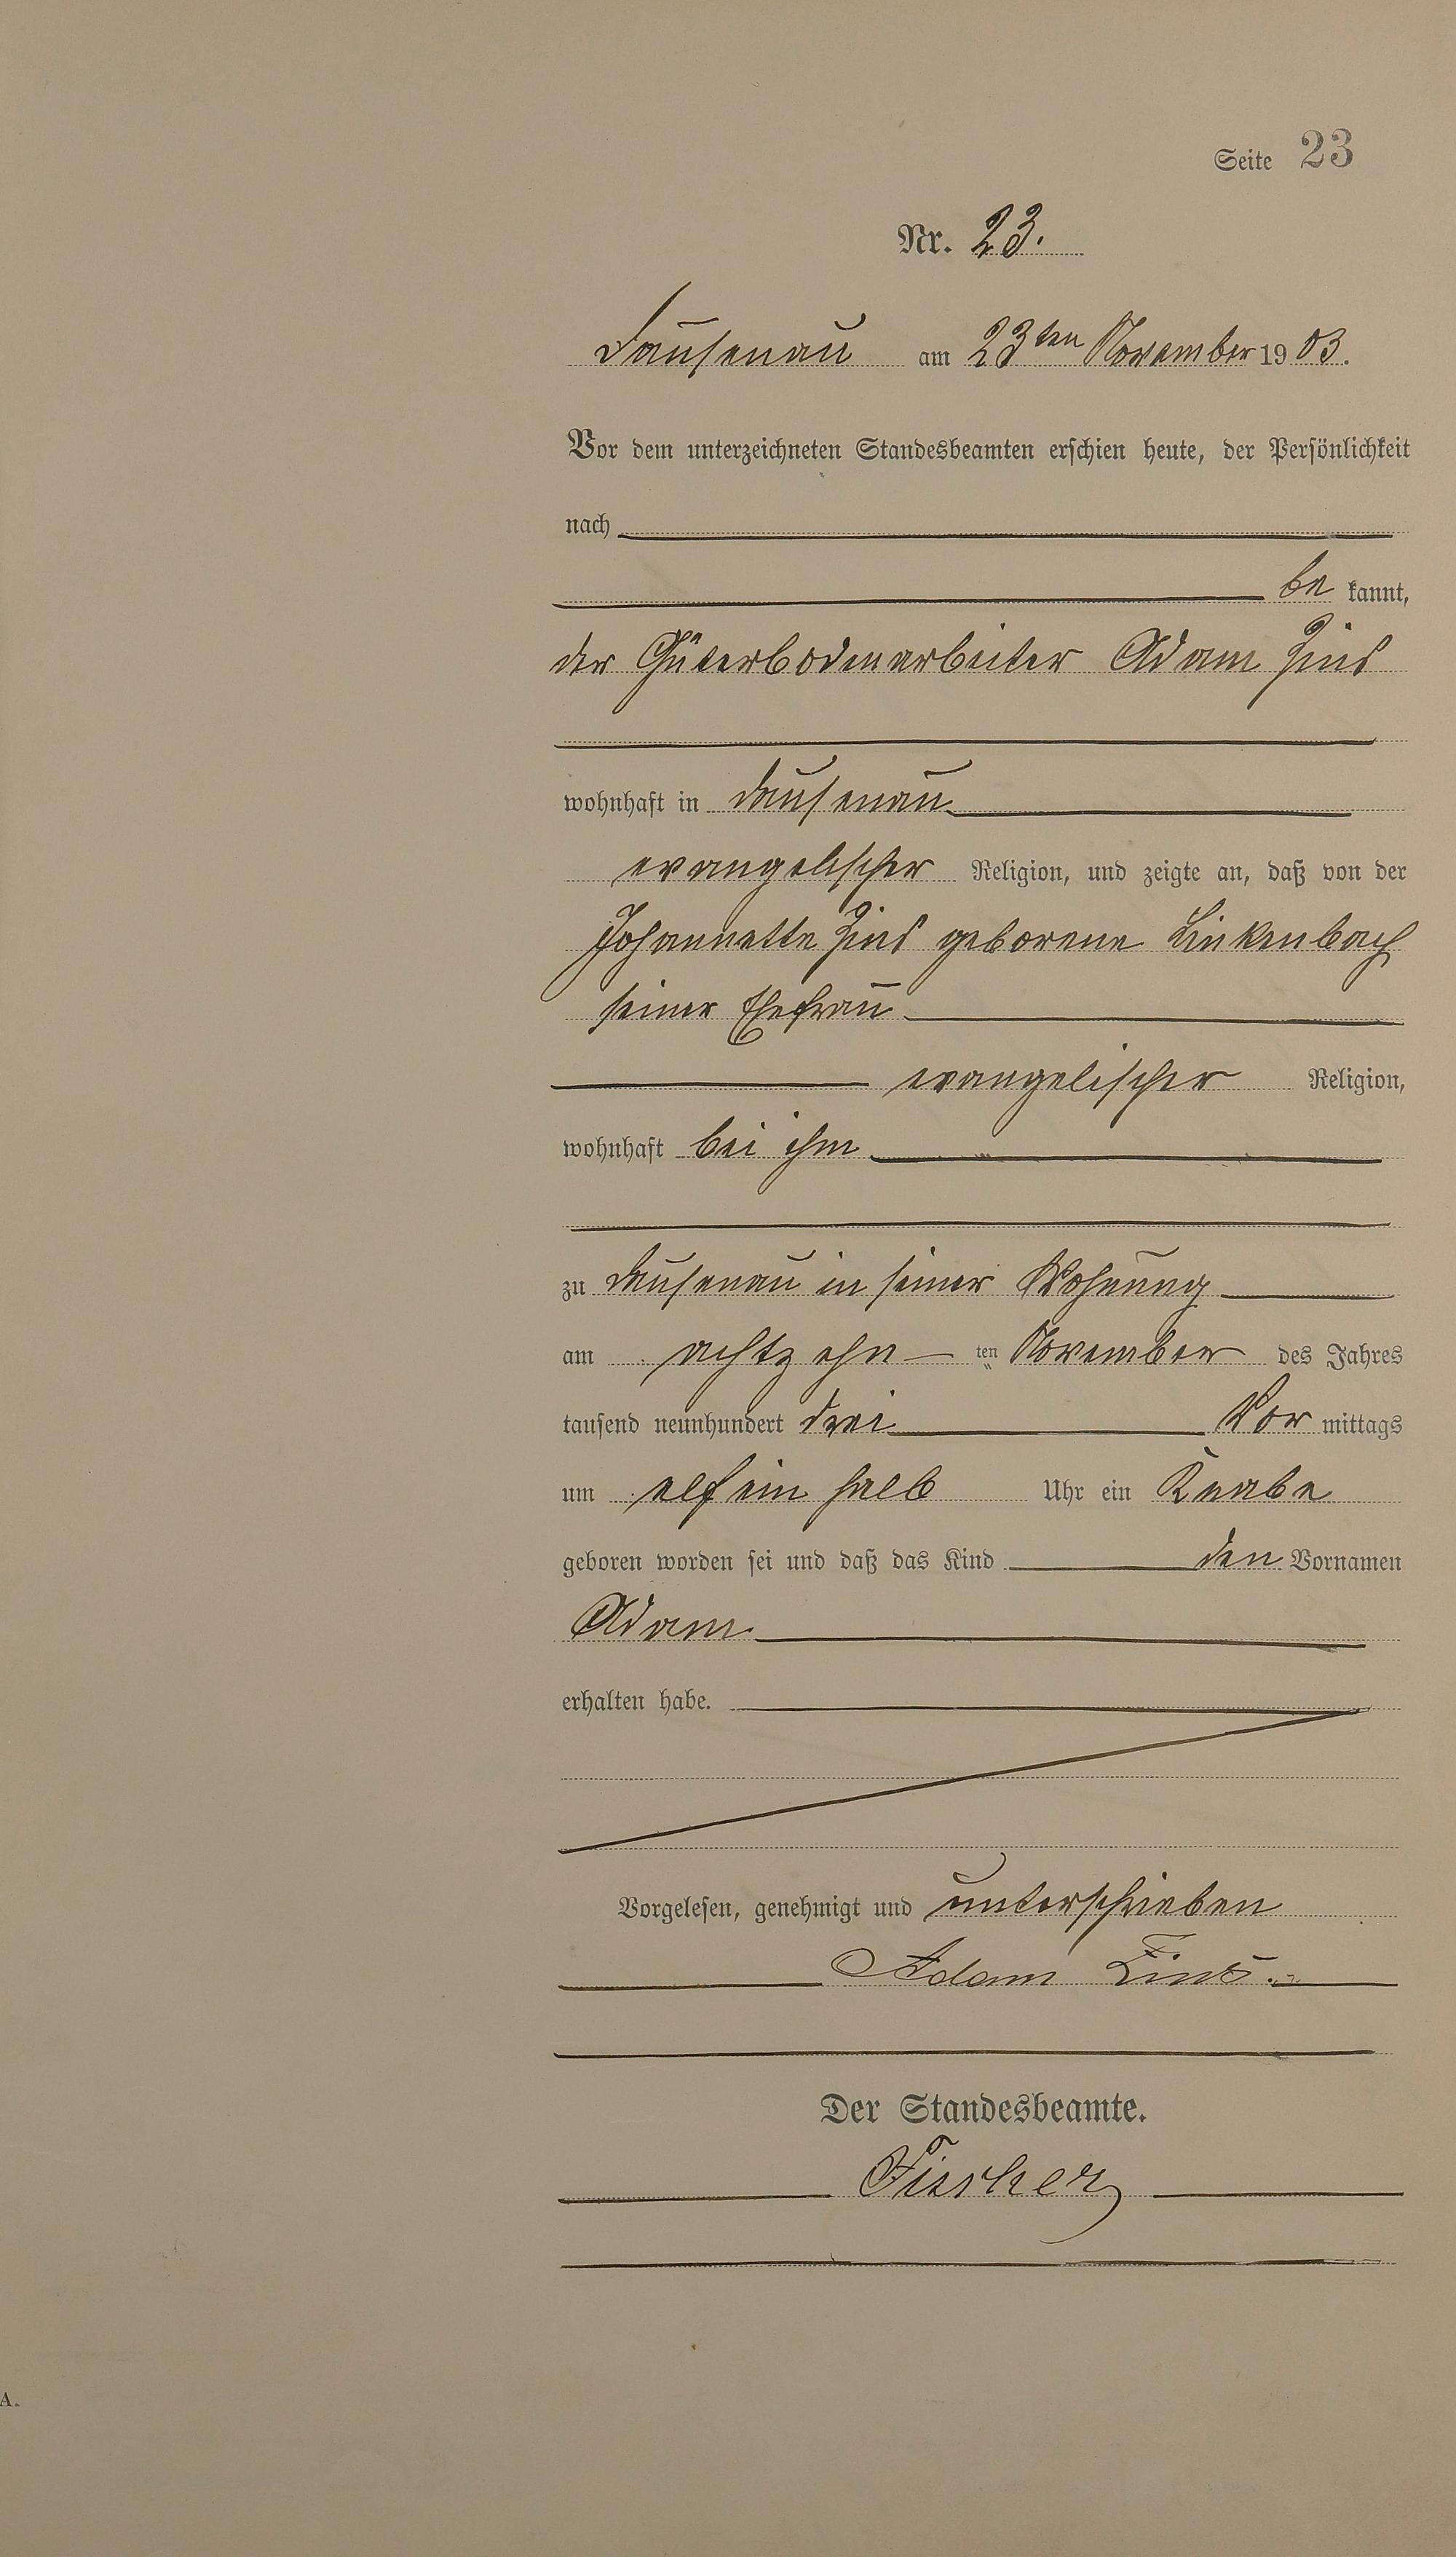 Seite 23
Nr. 23.
Dausenau am 23ten November 1903.
Vor dem unterzeichneten Standesbeamten erschien heute, der Persönlichkeit
nach
be kannt,
der Güterbodenarbeiter Adam Zins
wohnhaft in Dausenau
evangelischer Religion, und zeigte an, daß von der
Johannette Zins geborene Linkenbach
seiner Ehefrau
evangelischer Religion,
wohnhaft bei ihm
zu Dausenau in seiner Wohnung
am achtzehn ten November des Jahres
tausend neunhundert drei Vor mittags
um elf ein halb Uhr ein Knabe
geboren worden sei und daß das Kind den Vornamen
Adam
erhalten habe.
Vorgelesen, genehmigt und unterschrieben
Adam Zins.
Der Standesbeamte.
Fischer
A.